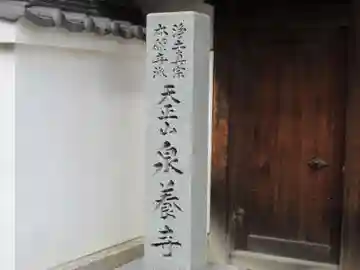 浄土真宗
本願寺派
天正山泉養寺